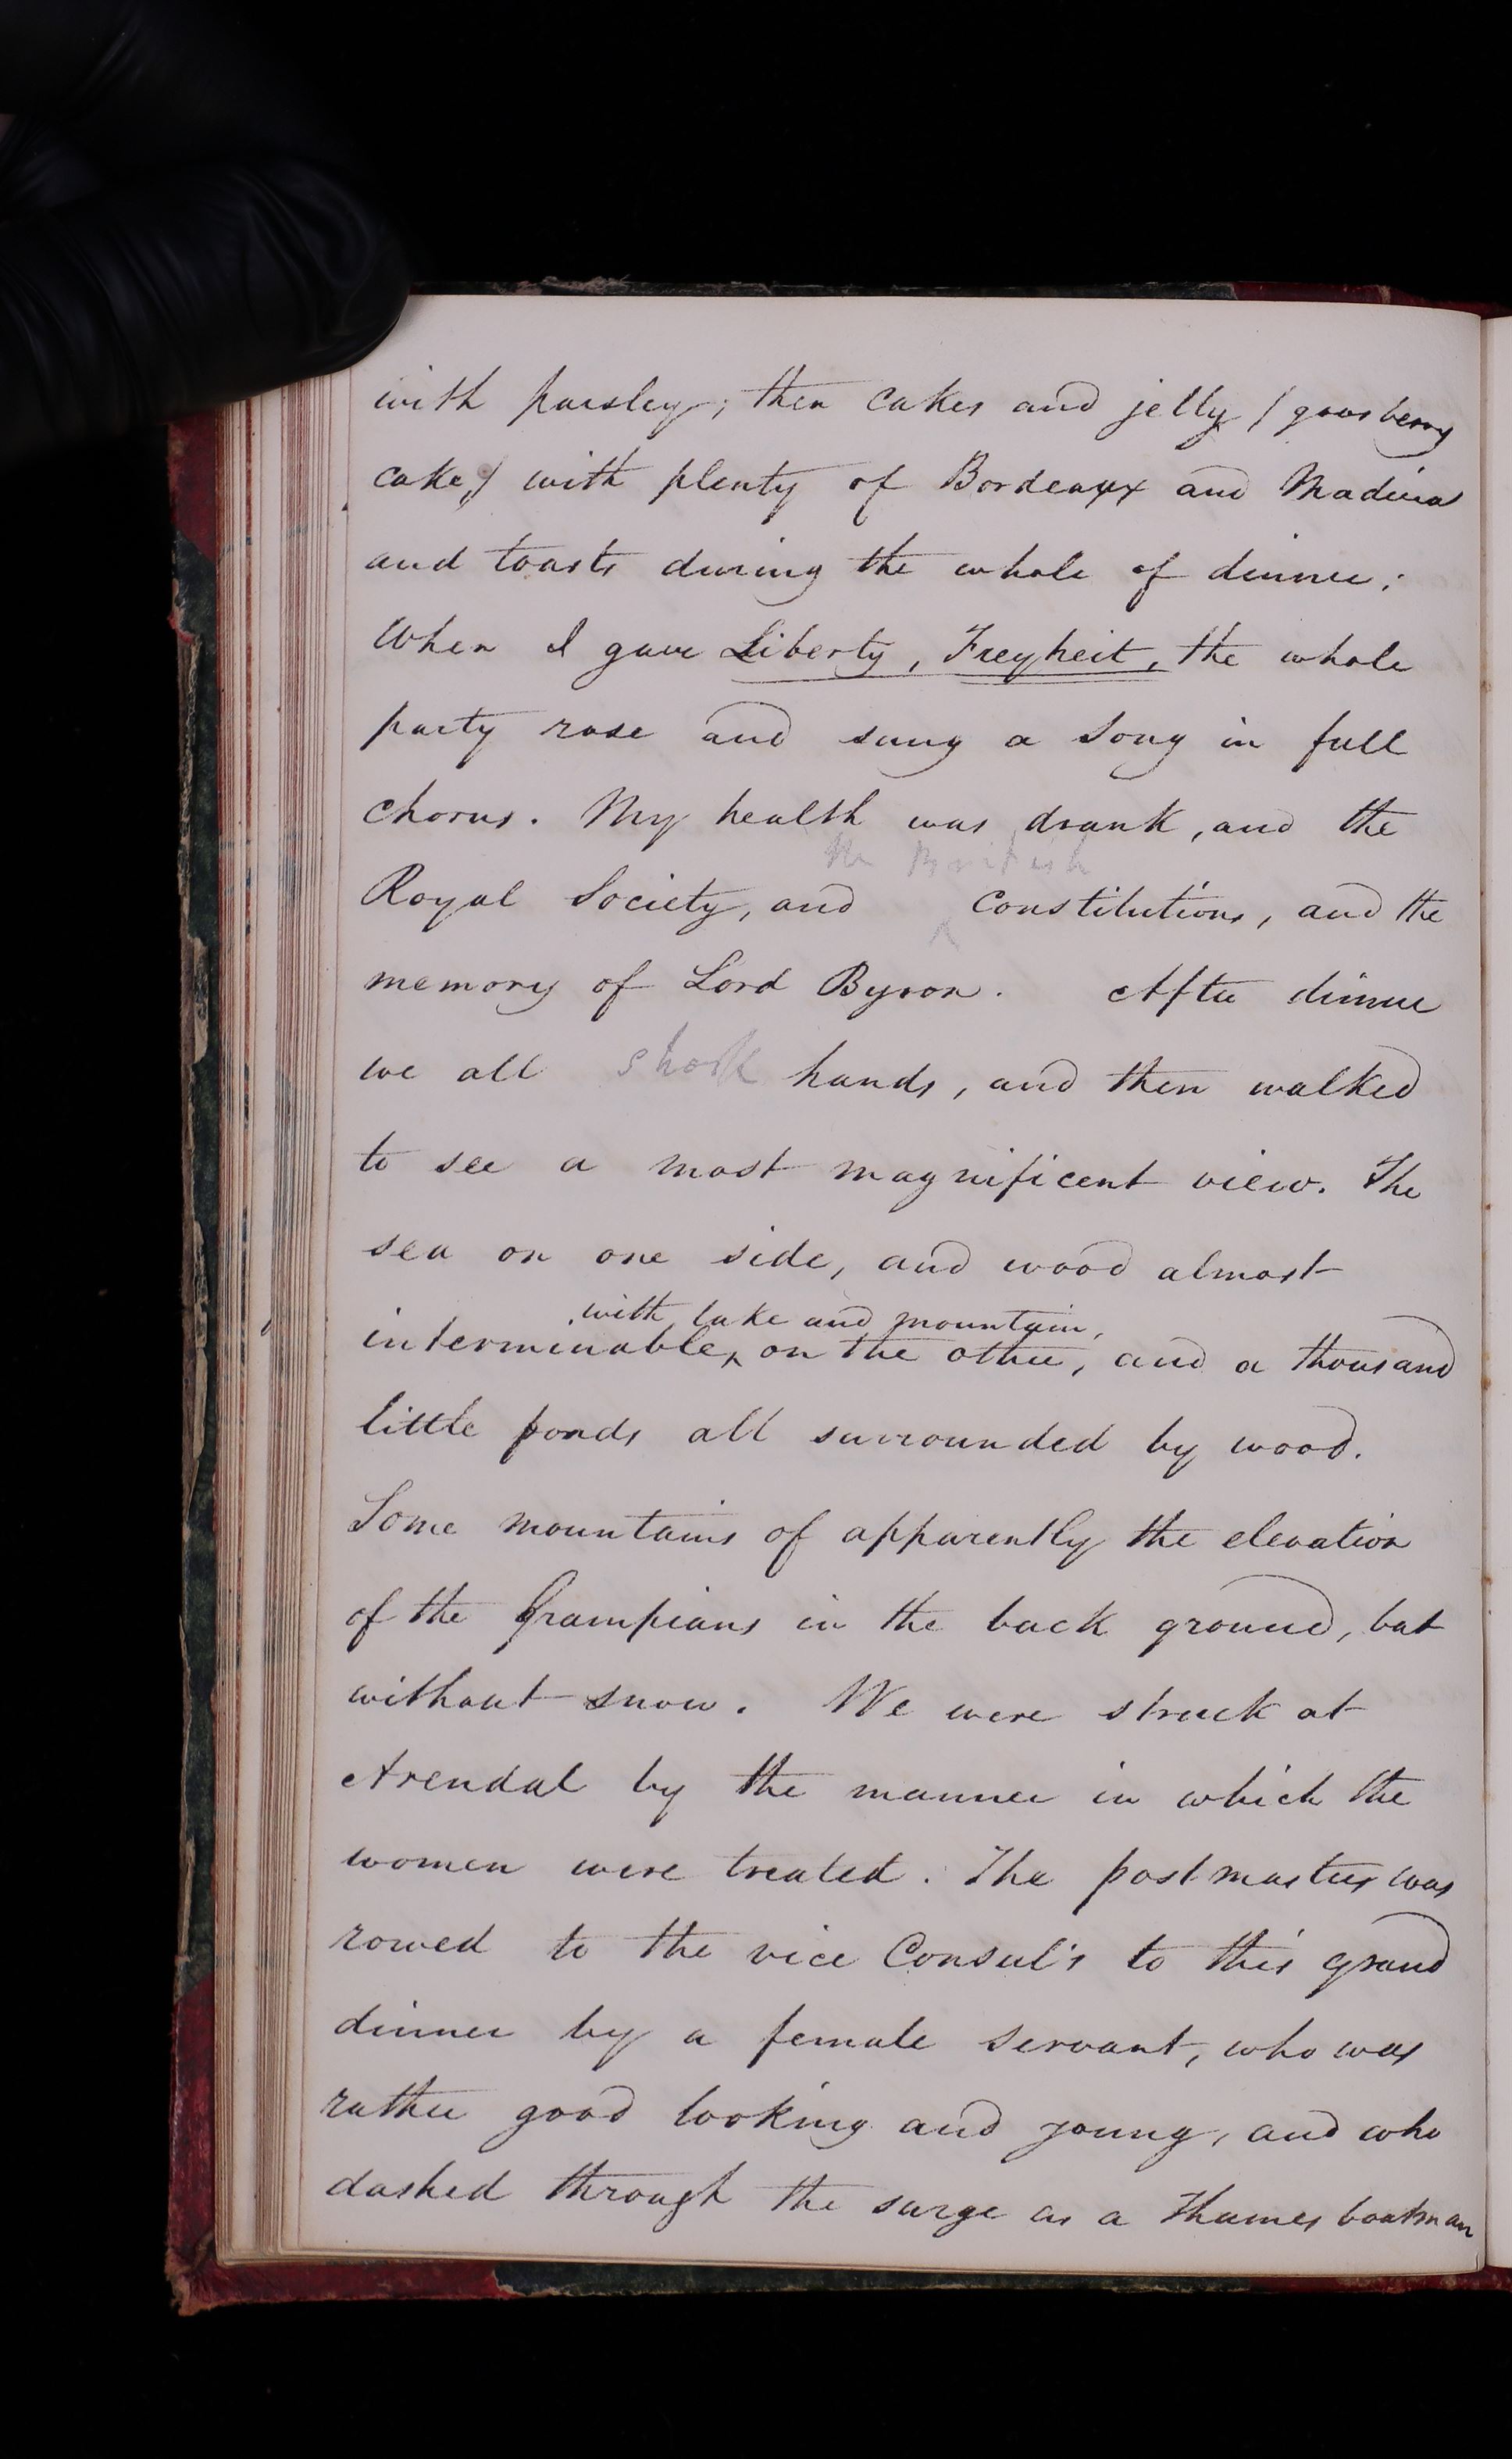 with parsley; then cakes and jelly (goosberry
cake,) with plenty of Bordeaux and Madeira
and toasts during the whole of dinner;
When I gave Liberty, Freyheit, the whole
party rose and sung a song in full
chorus. My health was drank, and the
the British
Royal Society, and ^ constitutions, and the
memory of Lord Byron. After dinner
we all shook hands, and then walked
to see a most magnificent view. The
sea on one side, and wood almost
, with lake and mountain,
interminable, ^ on the other, and a thousand
little ponds all surrounded by wood.
Some mountains of apparently the elevation
of the Grampians in the back ground, but
without snow. We were struck at
Arendal by the manner in which the
women were treated. The postmaster was
rowed to the vice Consul's to this grand
dinner by a female servant, who was
rather good looking and young, and who
dashed through the surge as a Thames boatman